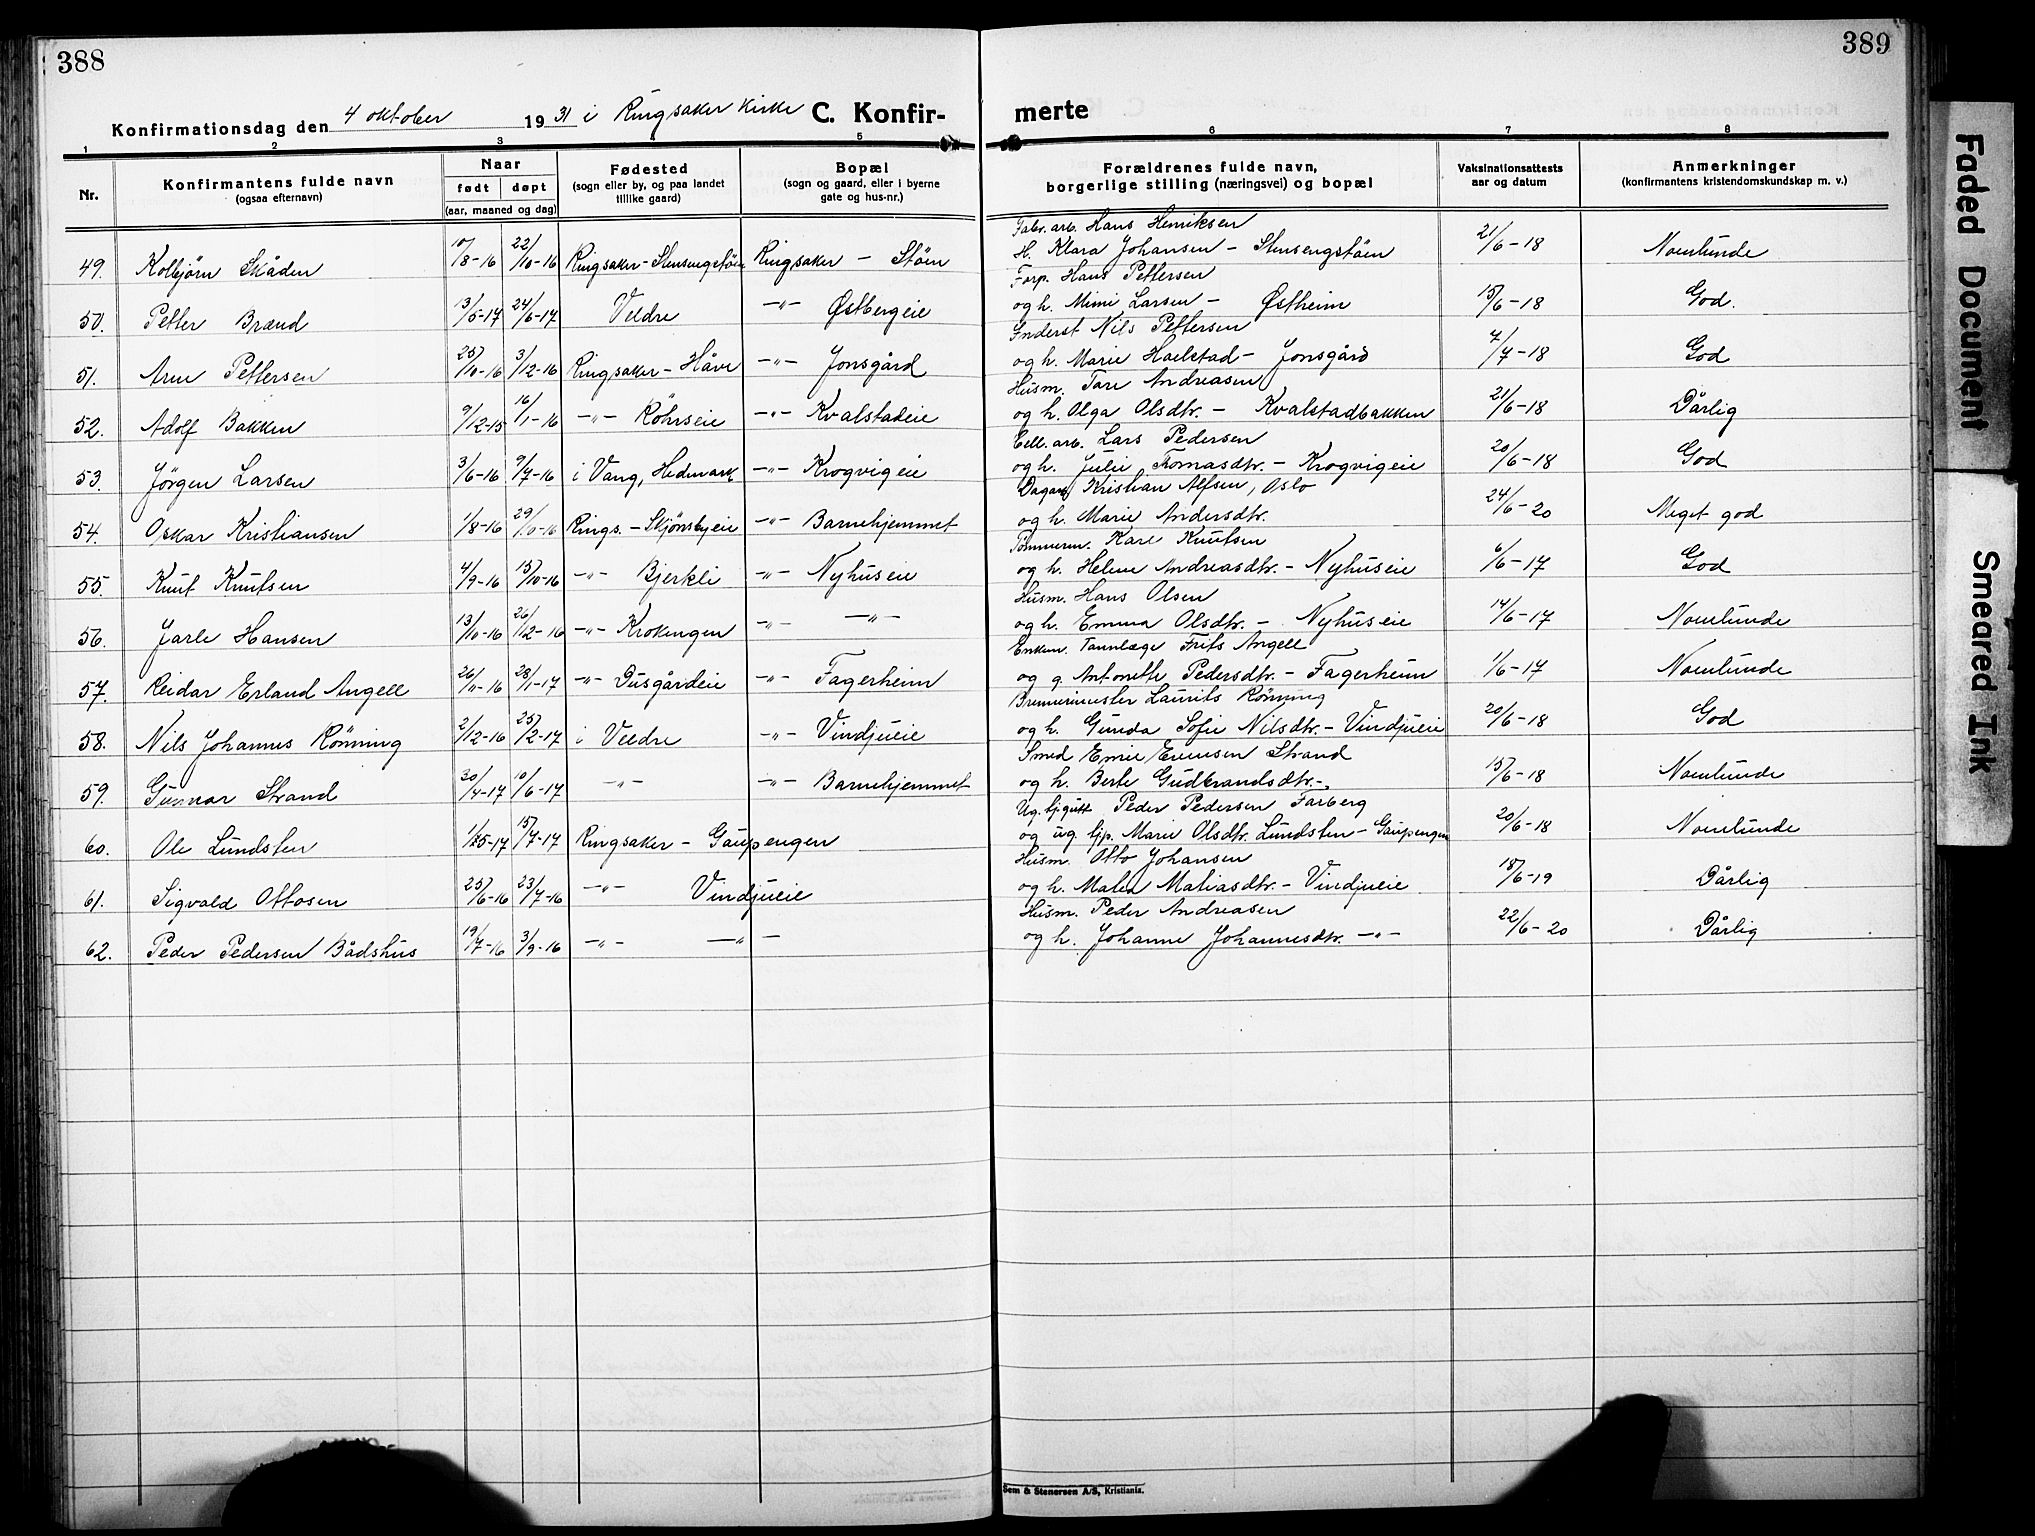 388
389
Konfirmationsdag den 4 oktober 1931 i Ringsaker Kirke C. Konfir-
merte
1 2 3 4 5 6 7 8
Nr. Konfirmantens fulde navn (ogsaa efternavn) Naar født døpt (aar, maaned og dag) Fødested (sogn eller by, og paa landet tillike gaard) Bopæl (sogn og gaard, eller i byerne gate og hus-nr.) Forældrenes fulde navn, borgerlige stilling (næringsvei) og bopæl Vaksinationsattests aar og datum Anmerkninger (konfirmantens kristendomskundskap m. v.)
Fabr. arb. Hans Henriksen
49. Kolbjörn Skåden 10/8-16 22/10-16 Ringsaker-Stensengstöen Ringsaker - Stöen H. Klara Johansen - Stensengstöen 21/6-18 Noenlunde
Forp. Hans Pettersen
50. Petter Brænd 3/5-17 24/6-17 Veldre -"- Østbergeie og h. Mimi Larsen - Østheim 15/6-18 God.
Inderst Nils Pettersen
51. Arne Pettersen 25/10-16 3/12-16 Ringsaker - Håve -"- Jonsgård og h. Marie Haelstad - Jonsgård 7/7-18 God
Husm. Tare Andreasen
52. Adolf Bakken 9/12-15 16/1-16 -"- Röhrseie -"- Kvalstadeie og h. Olga Olsdtr. - Kvalstadbakken 21/6-18 Dårlig
Cell. arb. Lars Pedersen
53. Jörgen Larsen 3/6-16 9/7-16 i Vang, Hedmark -"- Krogvigeie og h. Julie Tomasdtr. - Krogvigeie 20/6-18 God
Kristian Alfsen, Oslo
54. Oskar Kristiansen 1/8-16 29/10-16 Rings. - Skjönsbyeie -"- Barnehjemmet og h. Marie Andersdtr. 24/6-20 Meget god
Tömmerm. Karl Knutsen
55. Knut Knutsen 4/9-16 15/10-16 -"- Bjerkli -"- Nyhuseie og h. Helene Andreasdtr. - Nyhuseie 6/6-17 God
Husm. Hans Olsen
56. Jarle Hansen 13/10-16 26/12-16 -"- Krokengen -"- -"- og h. Emma Olsdtr. - Nyhuseie 14/6-17 Noenlunde
Enkem. Tannlæge Frits Angell
57. Reidar Erland Angell 26/11-16 28/1-17 -"- Dusgårdeie -"- Fagerheim og g. Antonette Pedersdtr. - Fagerheim 1/6-17 Noenlunde
Brennerimester Laurits Rönning
58. Nils Johannes Rönning 2/12-16 25/2-17 i Veldre -"- Vindjueie og h. Gunda Sofie Nilsdtr. - Vindjueie 20/6-18 God
Smed Emil Evensen Strand
59. Gunnar Strand 30/4-17 10/6-17 -"- -"- Barnehjemmet og h. Berte Gudbrandsdtr. - 15/6-18 Noenlunde
Ug. tj.gutt Peder Pedersen Farberg
60. Ole Lundsten 1/5-17 15/7-17 Ringsaker - Gaupengen og ug. tjp. Marie Olsdtr. Lundsten - Gaupengen 20/6-18 Noenlunde
Husm. Otto Johansen
61. Sigvald Ottosen 25/6-16 23/7-16 -"- Vindjueie og h. Malen Matiasdtr. - Vindjueie 18/6-19 Dårlig
Husm. Peder Andreasen
62. Peder Pedersen Bådshus 19/7-16 3/9-16 -"- -"- og h. Johanne Johannesdtr. -"- 22/6-20 Dårlig
Sem & Stenersen A/S, Kristiania.
Faded Document
Smeared Ink